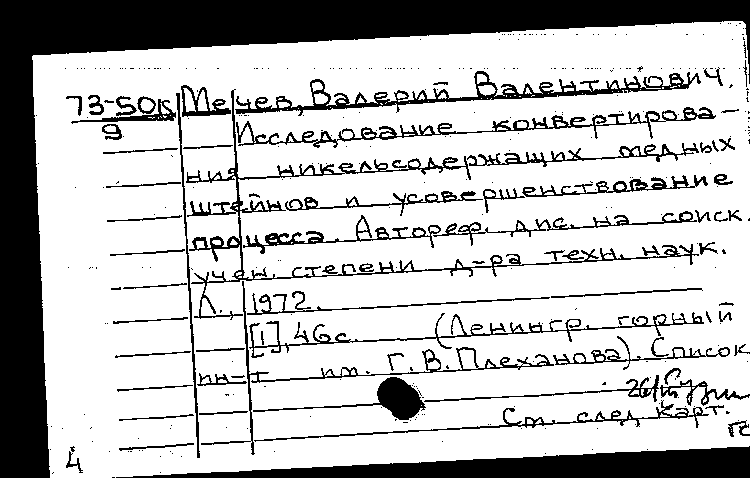 73-50к Мечев, Валерий Валентинович.
9 Исследование конвертирова-
ния никельсодержащих медных
штейнов и усовершенствование
процесса. Автореф. дис. на соиск.
учен. степени д-ра техн. наук.
Л., 1972.
[1], 46с. (Ленингр. горный
ин-т им. Г. В. Плеханова). Список
См. след. карт.
4